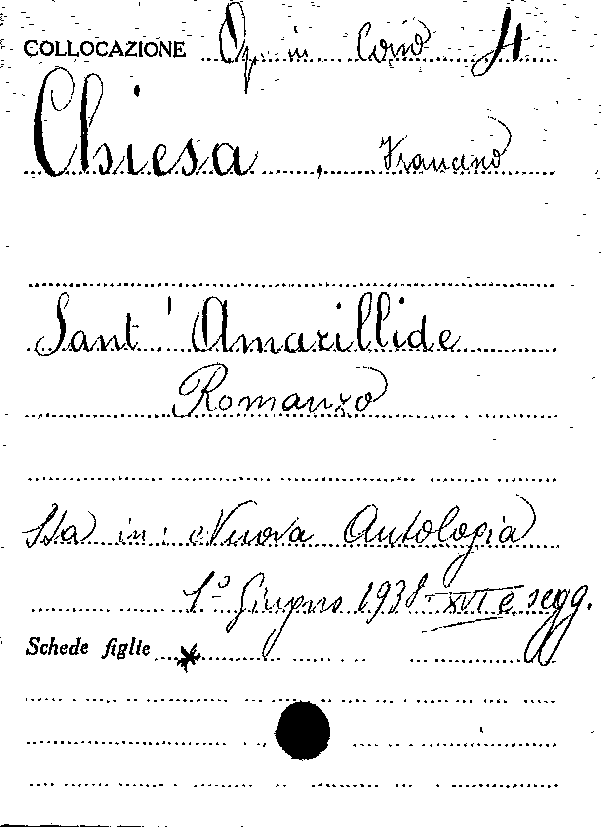 COLLOCAZIONE Op. in Corso 4
Chiesa, Francesco
Sant'Amarillide
Romanzo
Sta in: Nuova Antologia
1º Giugno 1938-XVI e segg.
Schede figlie